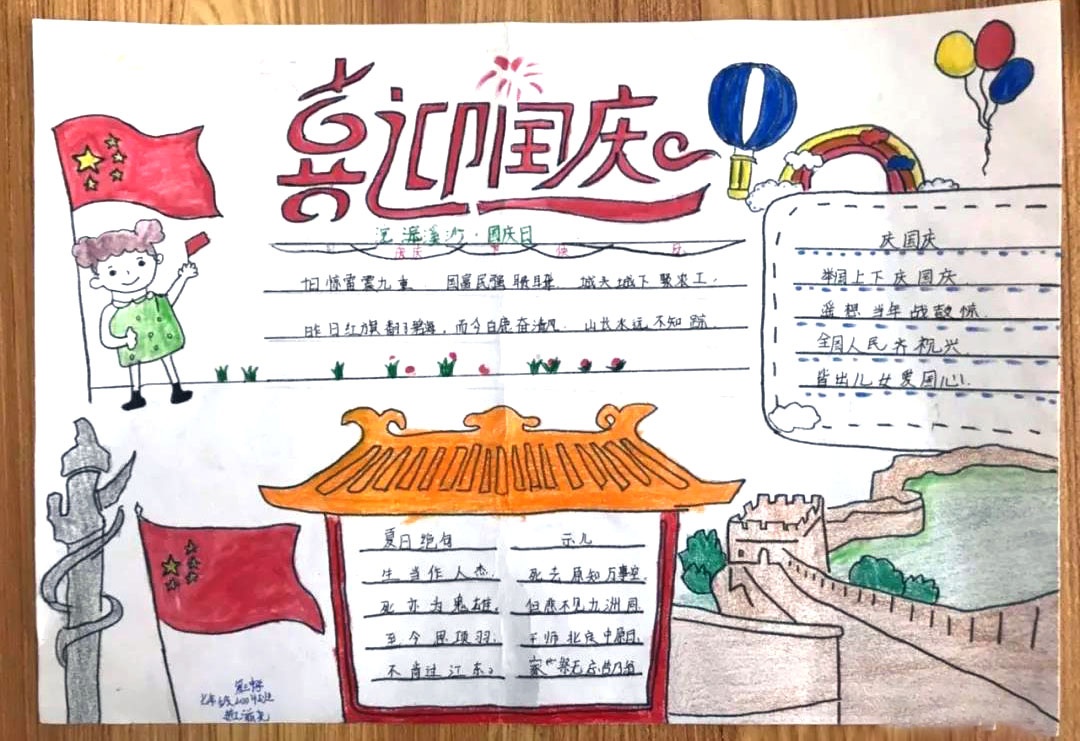 喜迎国庆
浣溪沙·国庆日
庆
快
旧惊雷震九重 国富民强 城头城下聚农工.
昨日红旗翻碧海,而今白鹿奋清风. 山长水远不知踪.
庆国庆
举国上下庆国庆.
遥想当年战鼓惊.
全国人民齐祝兴.
皆出儿女爱国心.
夏日绝句
生当作人杰.
死亦为鬼雄.
至今思项羽.
不肯过江东.
示儿
死去原知万事空.
但悲不见九洲同.
王师北定中原日.
家祭无忘告乃翁